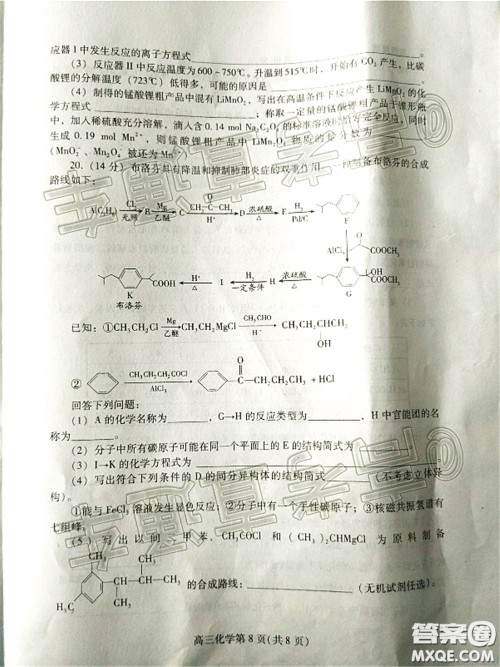 应器Ⅰ中发生反应的离子方程式
（3）反应器Ⅱ中反应温度为600~750℃。升温到515℃时，开始有CO₂产生，比碳
酸锂的分解温度（723℃）低得多，可能的原因是
（4）制得的锰酸锂粗产品中混有LiMnO₂，写出在高温条件下反应产生LiMnO₂的化
学方程式 ，称取一定量的锰酸锂粗产品于锥形瓶
中，加入稀硫酸充分溶解，滴入含0.14 mol Na₂C₂O₄的标准溶液 完全反应，同时
生成0.19 mol Mn²⁺，则锰酸锂粗产品中LiMn₂O₄物质的量分数为
（MnO₂、Mn₂O₄ 被还为Mn²⁺）
20.（14分）布洛芬具有降温和抑制肺部炎症的双重作用。 制备布洛芬的合成
路线如下：
A(C₇H₈) Cl₂ 光照 B Mg 乙醚 C H⁺ D 浓硫酸 △ E H₂ Pd/C F
AlCl₃ OCH₃
COOH K 布洛芬 H⁺ △ I H₂ 一定条件 H 浓硫酸 △ OH COOCH₃ G
已知：①CH₃CH₂Cl Mg 乙醚 CH₃CH₂MgCl CH₃CHO H⁺ CH₃CH₂CHCH₃ OH
② CH₃CH₂CH₂COCl AlCl₃ O C CH₂CH₂CH₃ + HCl
回答下列问题：
（1）A的化学名称为 ，G→H的反应类型为 ，H中官能团的名
称为 。
（2）分子中所有碳原子可能在同一个平面上的E的结构简式为
（3）I→K的化学方程式为
（4）写出符合下列条件的D的同分异构体的结构简式 （不考虑立体异
构）。
①能与FeCl₃溶液发生显色反应；②分子中有一个手性碳原子；③核磁共振氢谱有
七组峰。
（5）写出以间二甲苯、CH₃COCl和(CH₃)₂CHMgCl为原料制备
CH₃ H₃C CH₃ CH₃ CH₃ 的合成路线： （无机试剂任选）。
高三化学第8页（共8页）
答案圈
MXQE.COM